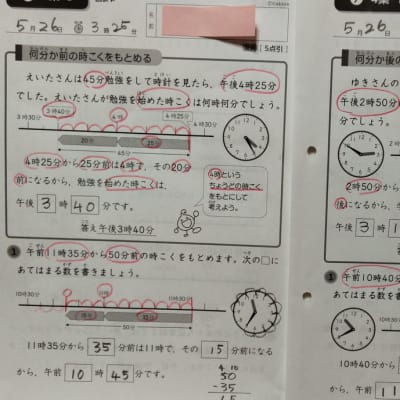 5月26日 3時25分
名前
[5点引]
何分か前の時こくをもとめる
えいたさんは45分勉強をして時計を見たら、午後4時25分
でした。えいたさんが勉強を始めた時こくは何時何分でしょう。
3時30分 3時40分 4時 4時25分 4時30分
20分 25分
45分
4時25分から25分前は4時で、その20分
前になるから、勉強を始めた時こくは、
午後 3 時 40 分です。
答え 午後3時40分
4時という
ちょうどの時こく
をもとにして
考えよう。
1 午前11時35分から50分前の時こくをもとめます。次の□に
あてはまる数を書きましょう。
10時30分 11時 11時35分
15分 35分
50分
11時35分から 35 分前は11時で、その 15 分前になる
から、午前 10 時 45 分です。
4 10
50
-35
15
5月26
何分か後の
ゆきさんの
午後2時50分
でしょう。
2時30分
2時50分
後になるから
午後 3 時 1
1 午前10時40
あてはまる数
10時30分
10時40分から
から、午前 11